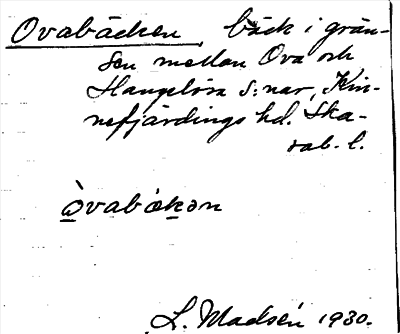 Ovabäcken, bäck i grän-
sen mellan Ova och
Hangelösa s:nar, Kin-
nefjärdings hd. Ska-
rab. l.
L. Madsén 1930.